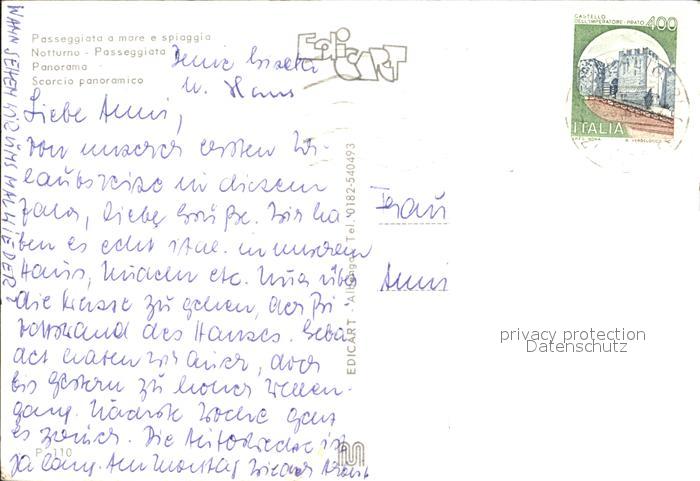 Passeggiata a mare e spiaggia
Notturno - Passeggiata
Panorama
Scorcio panoramico
EDICART
CASTELLO
DELL'IMPERATORE - PRATO 400
ITALIA
u. Hans
Liebe Anni,
von unserer ersten Ur-
laubsreise in diesem
Jahr, liebe Grüße. Wir ha
ben es echt ital. in unserem
Haus,
die Strasse zu gehen, der Pri-
vatstrand des Hauses. Geba
det haben wir auch, doch
bis gestern zu hoher Wellen-
gang. Nächste Woche geht
es zurück. Die
ja lang. Am Montag wieder
WANN SEHEN WIR UNS MAL WIEDER?
EDICART - Albenga - Tel. 0182-540493
Frau
Anni
privacy protection
Datenschutz
P 110